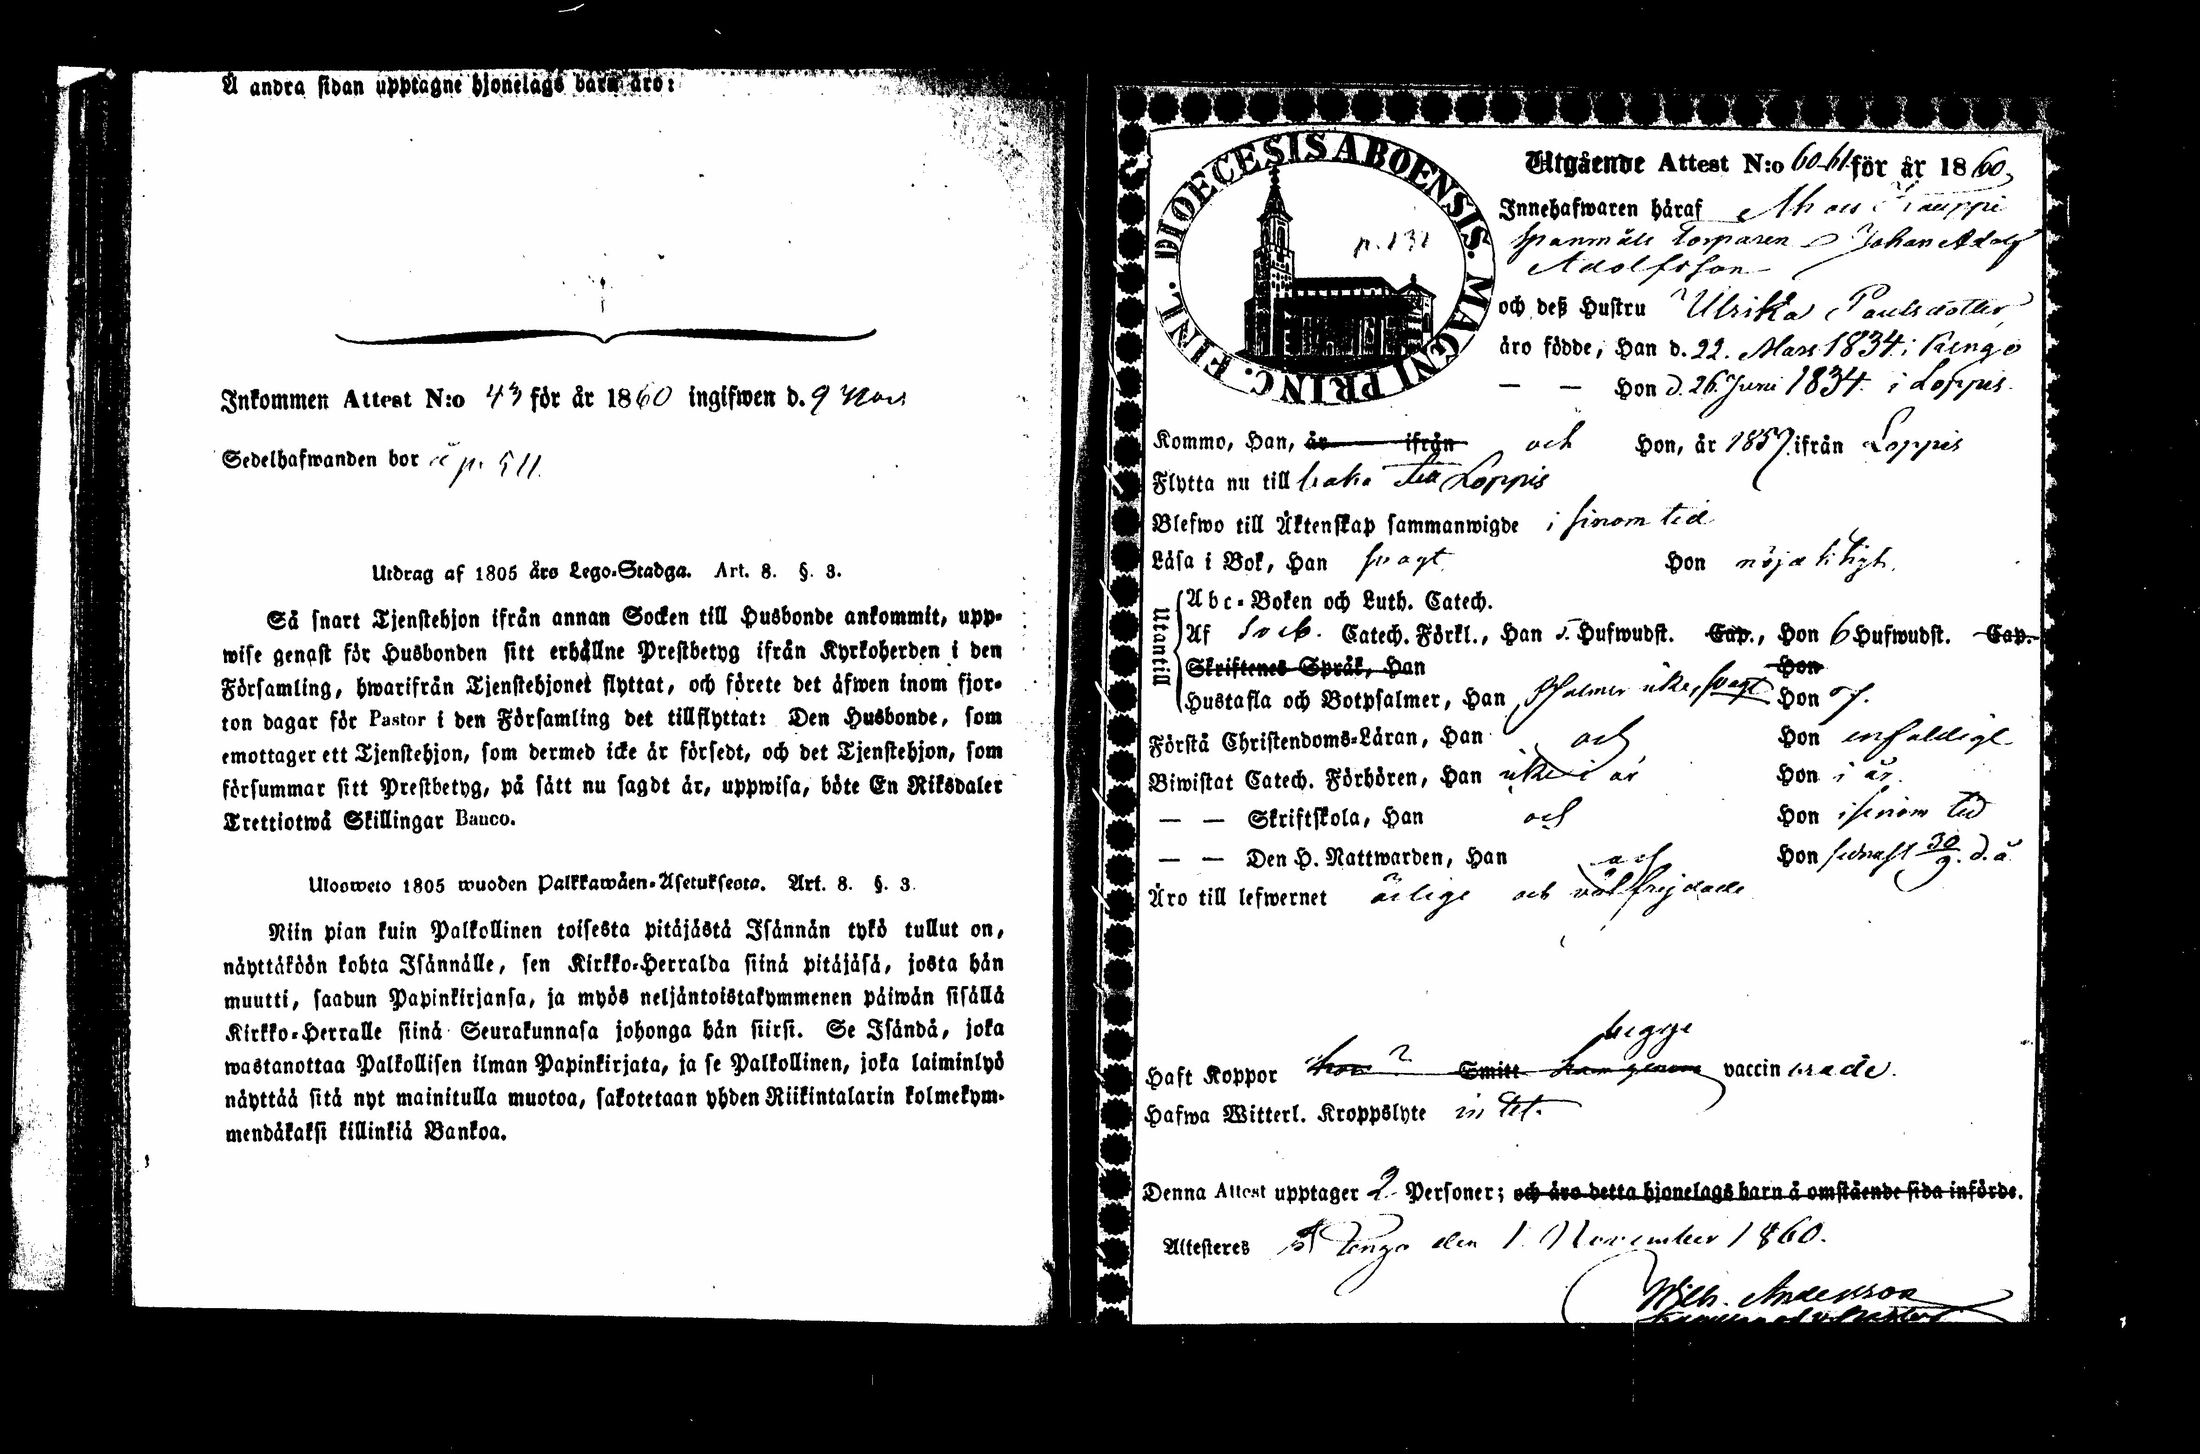 Å andra sidan upptagne hjonelags barn äro:
Inkommen Attest N:o 43 för år 1860 ingifwen d. 9 Nov
Sedelhafwanden bor å p. 511.
Utdrag af 1805 års Lego-Stadga. Art. 8. §. 3.
Så snart Tjenstehjon ifrån annan Socken till Husbonde ankommit, upp-
wise genast för Husbonden sitt erhållne Prestbetyg ifrån Kyrkoherden i den
Församling, hwarifrån Tjenstehjonet flyttat, och förete det äfwen inom fjor-
ton dagar för Pastor i den Församling det tillflyttat: Den Husbonde, som
emottager ett Tjenstehjon, som dermed icke är försedt, och det Tjenstehjon, som
försummar sitt Prestbetyg, på sätt nu sagdt är, uppwisa, böte En Riksdaler
Trettiotwå Skillingar Banco.
Ulosweto 1805 wuoden Palkkawäen-Asetuksesta. Art. 8. §. 3.
Niin pian kuin Palkollinen toisesta pitäjästä Isännän tykö tullut on,
näyttäköön kohta Isännälle, sen Kirkko-Herralda siinä pitäjäsä, josta hän
muutti, saadun Papinkirjansa, ja myös neljäntoistakymmenen päiwän sisällä
Kirkko-Herralle siinä Seurakunnasa johonga hän siirsi. Se Isändä, joka
wastanottaa Palkollisen ilman Papinkirjata, ja se Palkollinen, joka laiminlyö
näyttää sitä nyt mainitulla muotoa, sakotetaan yhden Riikintalarin kolmekym-
mendäkaksi killinkiä Bankoa.
DIOECESIS ABOENSIS. MAGNI PRINC. FINL.
p. 131
Utgående Attest N:o 60-61 för år 1860,
Innehafwaren häraf Kauppi
Spanmåls Torparen Johan Adolf
Adolfsson
och deß Hustru Ulrika Paulsdotter,
äro födde, Han d. 22. Mars 1834 i
— — Hon d. 26. Juni 1834. i Loppis.
Kommo, Han, år ifrån och Hon, år 1857. ifrån Loppis
Flytta nu till baka till Loppis
Blefwo till Äktenskap sammanwigde i sinom tid
Läsa i Bok, Han swagt Hon nöjaktigt.
Utantill
Abc-Boken och Luth. Catech.
Af Catech. Förkl., Han 5. Hufwudst. Cap., Hon 6 Hufwudst. Cap.
Skriftenes Språk, Han Hon
Hustafla och Botpsalmer, Han Psalmer icke, swagt Hon
Förstå Christendoms-Läran, Han och Hon enfaldigt
Biwistat Catech. Förhören, Han icke i år Hon i år.
— — Skriftskola, Han och Hon i sinom tid
— — Den H. Nattwarden, Han och Hon sednast 30/9. d. å.
Äro till lefwernet ärlige och välfrejdade
begge
Haft Koppor Smitt vaccinerade.
Hafwa Witterl. Kroppslyte intet.
Denna Attest upptager 2 Personer; och äro detta hjonelags barn å omstående sida införde.
Attesteres den 1. November 1860.
Wilh. Andersson